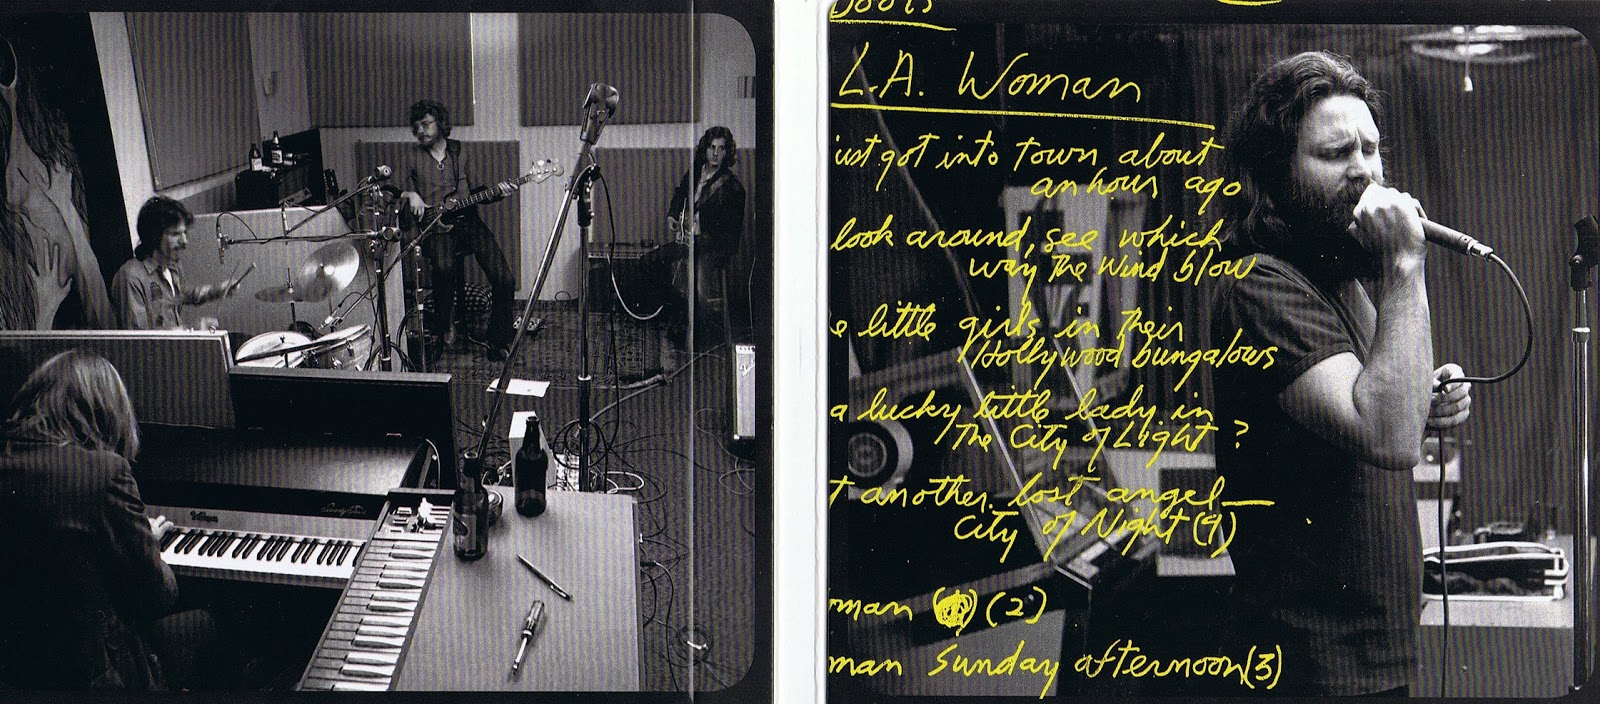 Doors
L.A. Woman
ust got into town about
an hour ago
look around, see which
way the wind blow
e little girls in their
Hollywood bungalows
a lucky little lady in
The City of Light?
t another lost angel—
City of Night (9)
man (2)
man Sunday afternoon (3)